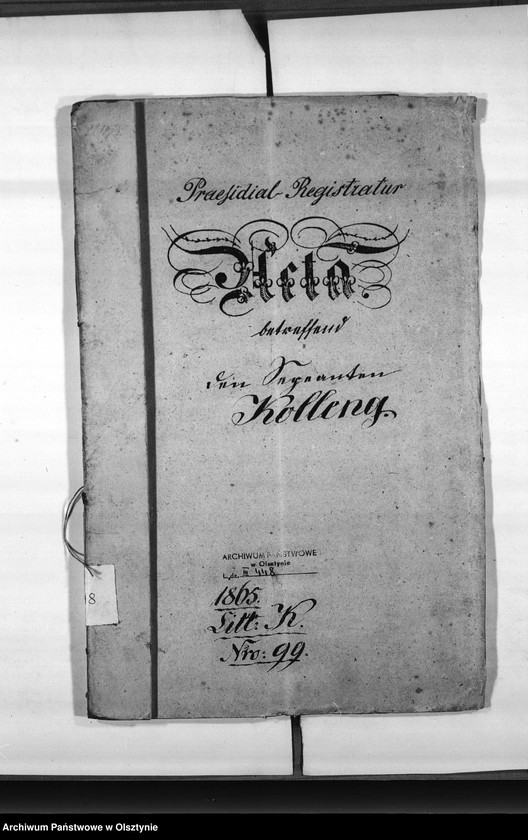 Praesidial-Registratur
Acta
betreffend
den Sergeanten
Kolleng.
ARCHIWUM PAŃSTWOWE
w Olsztynie
III 448
1865.
Litt: K.
Nro: 99.
8
Archiwum Państwowe w Olsztynie